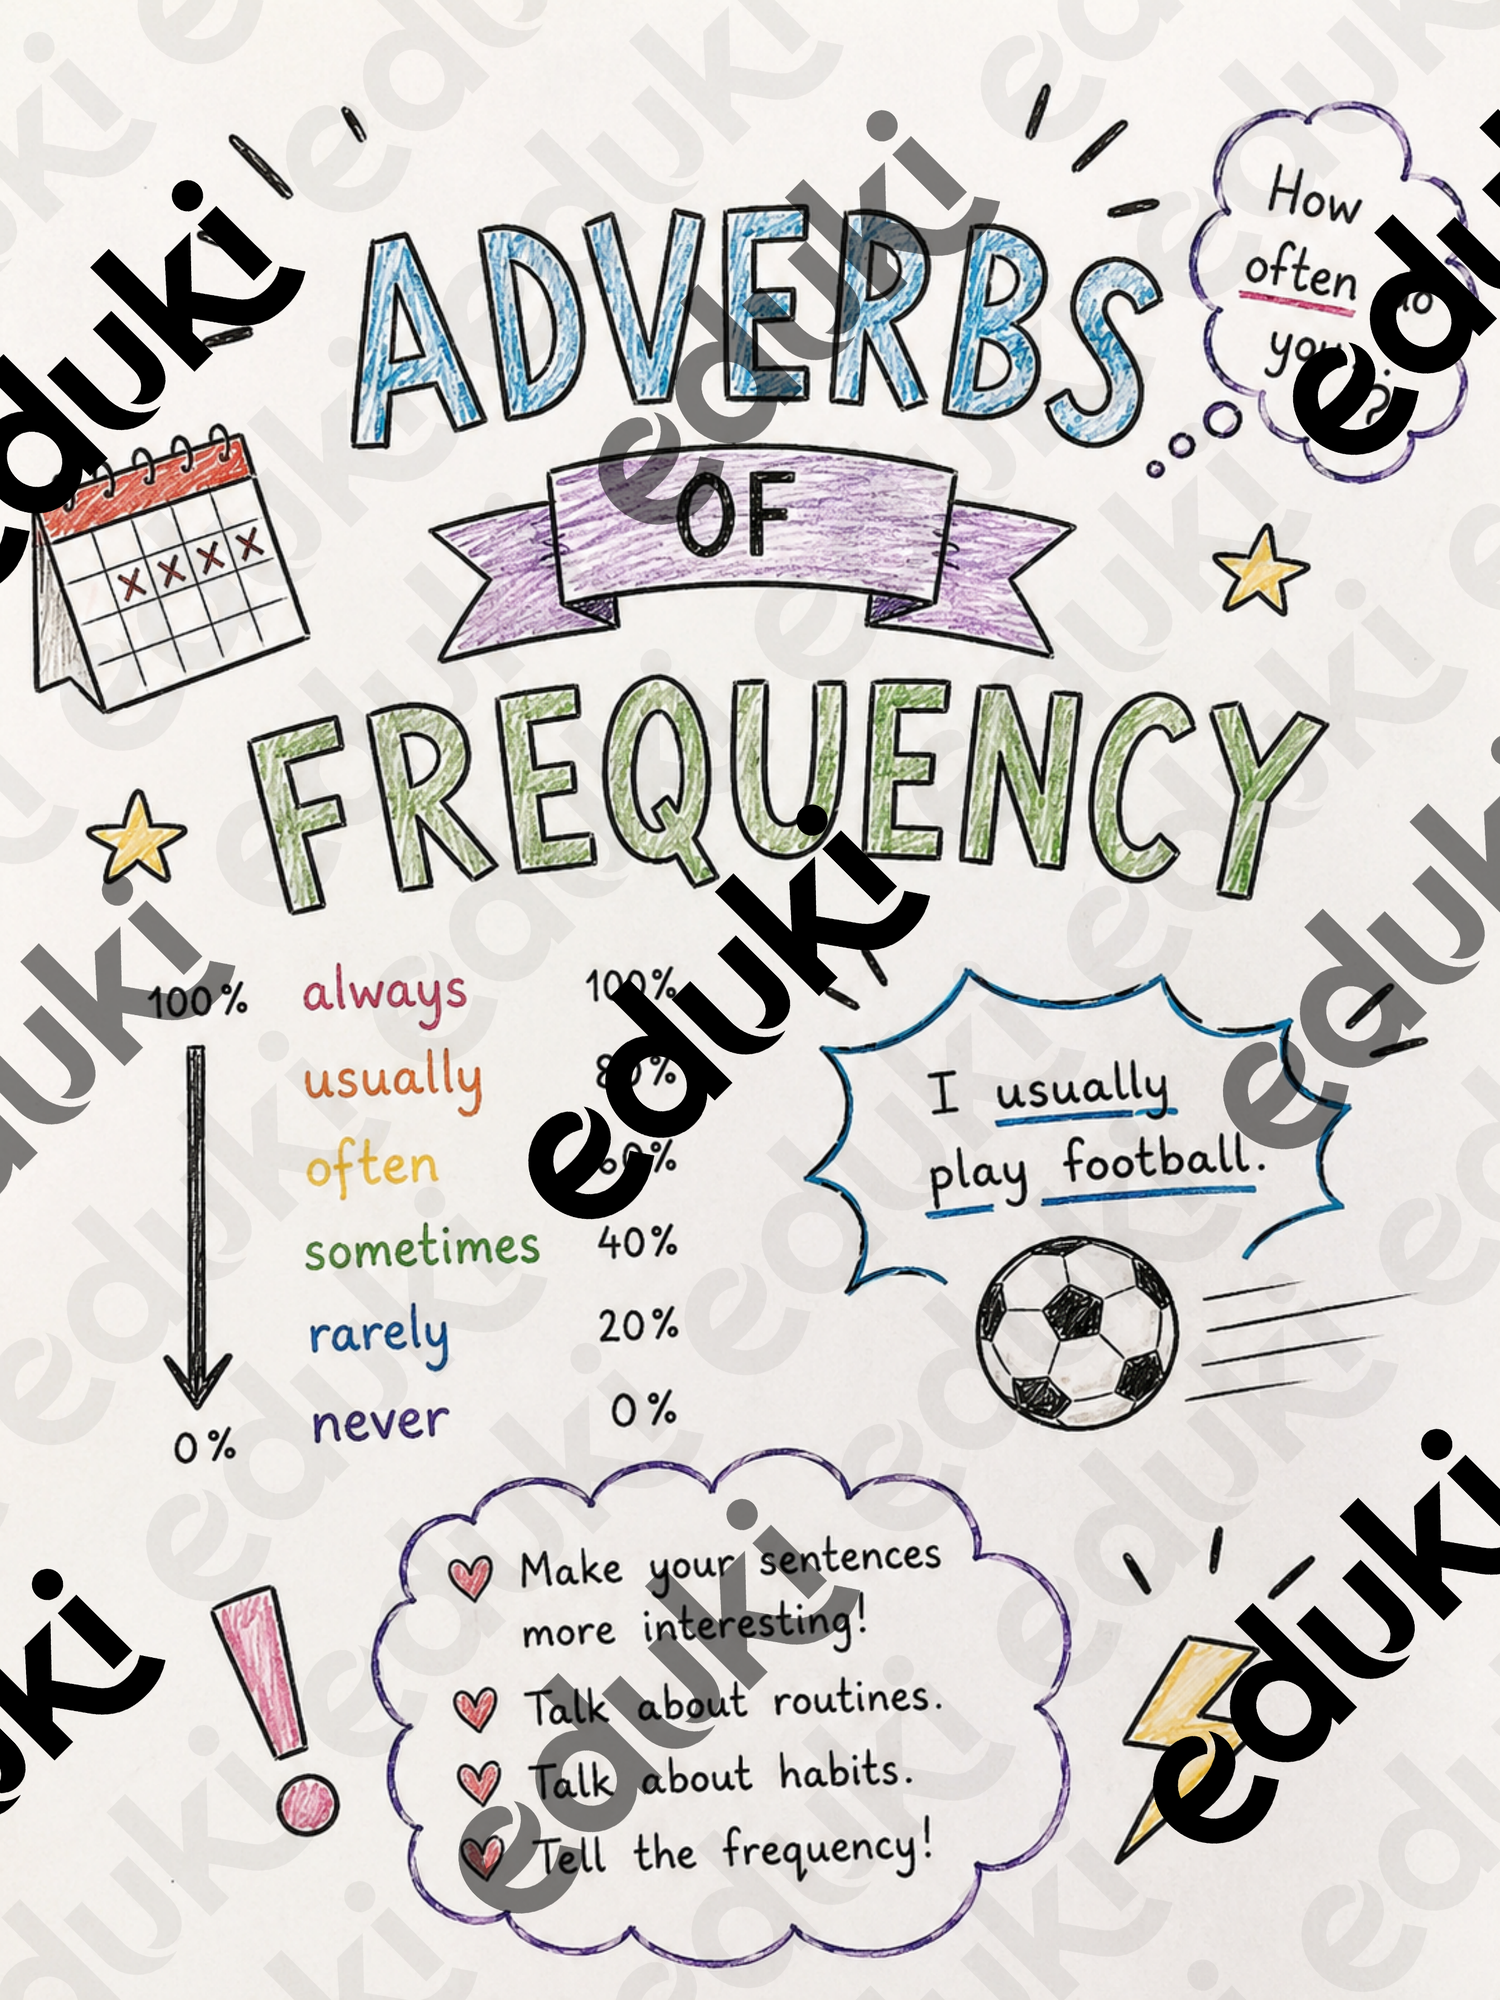 ADVERBS
OF
FREQUENCY
How
often do
you
?
100%
0%
always 100%
usually 80%
often 60%
sometimes 40%
rarely 20%
never 0%
I usually
play football.
Make your sentences
more interesting!
Talk about routines.
Talk about habits.
Tell the frequency!
eduki
eduki
eduki
eduki
eduki
eduki
eduki
eduki
eduki
eduki